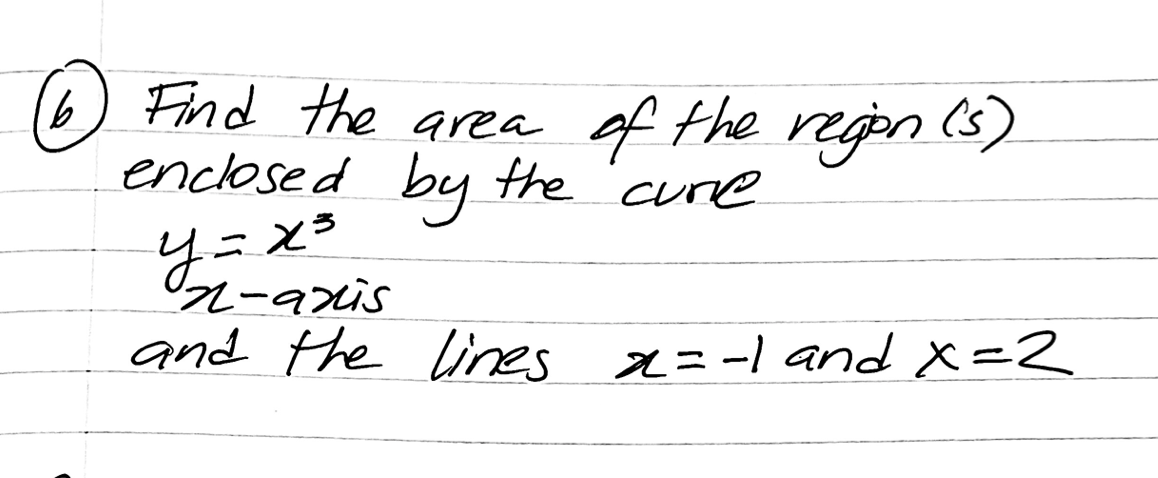 6 Find the area of the region(s)
enclosed by the curve
y = x³
x-axis
and the lines x = -1 and x = 2